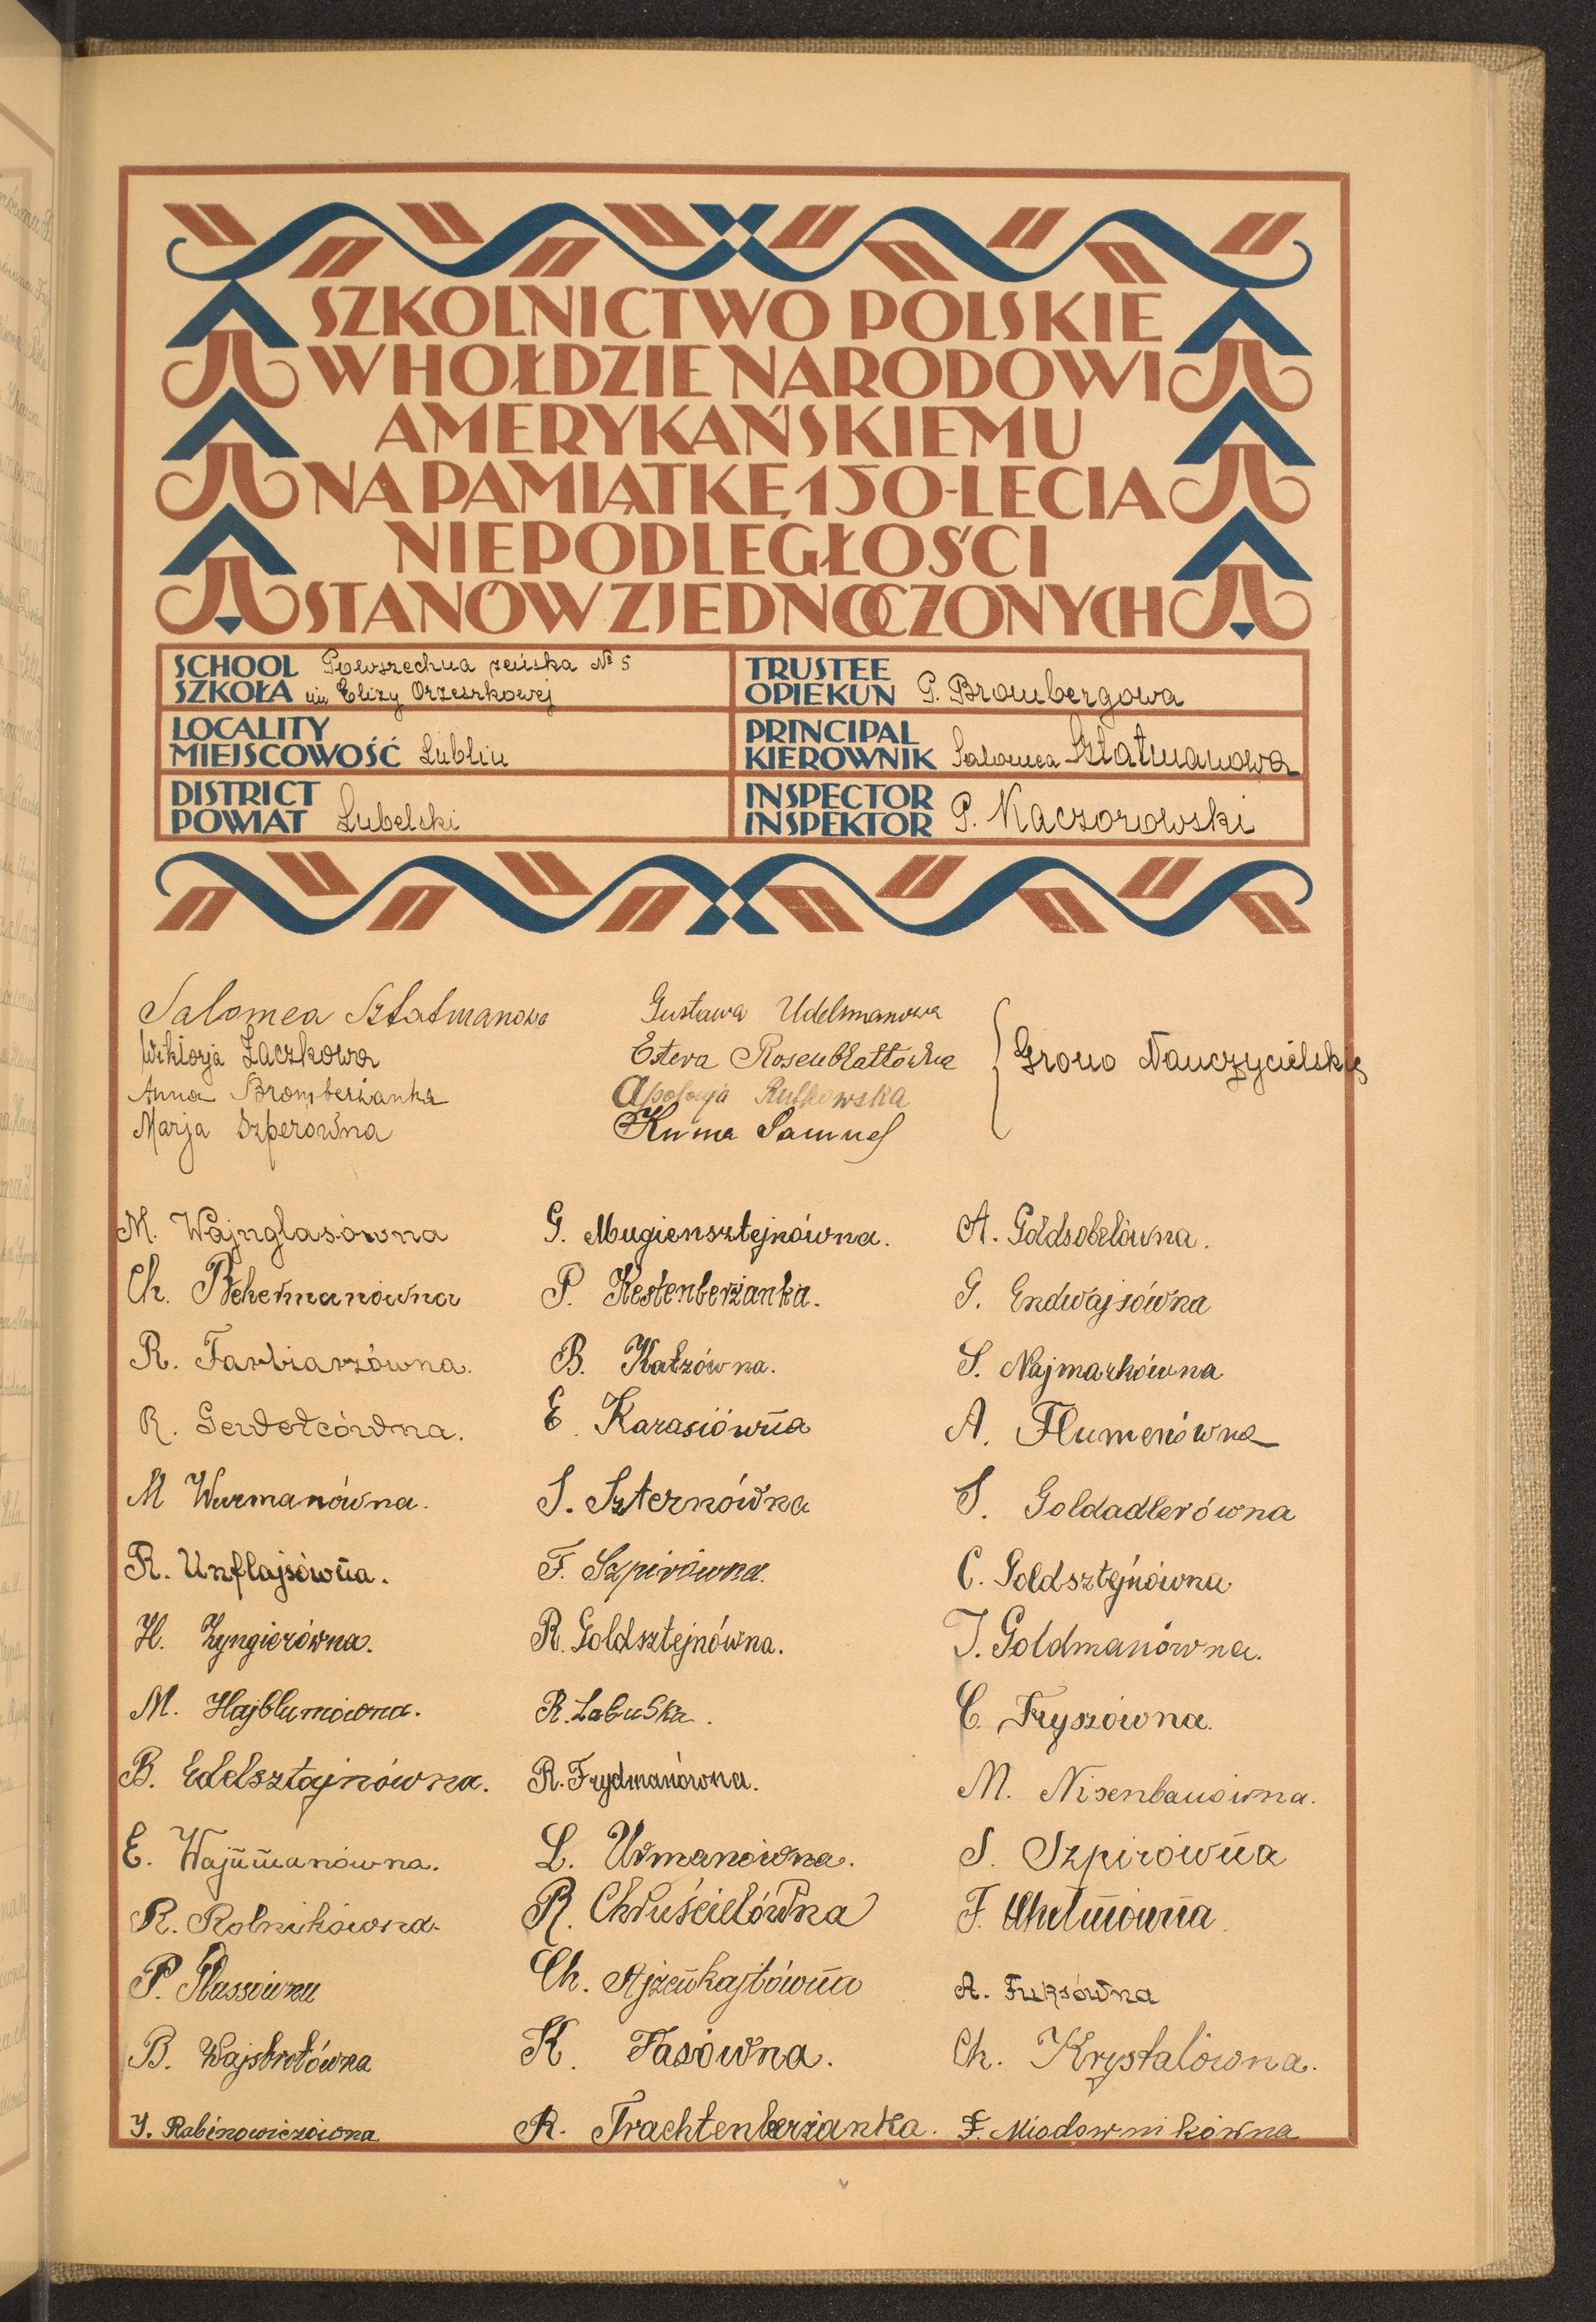 SZKOLNICTWO POLSKIE
W HOŁDZIE NARODOWI
AMERYKAŃSKIEMU
NA PAMIĄTKĘ 150-LECIA
NIEPODLEGŁOŚCI
STANÓW ZJEDNOCZONYCH
SCHOOL
SZKOŁA
Powszechna żeńska № 5
im Elizy Orzeszkowej
TRUSTEE
OPIEKUN P. Brombergowa
LOCALITY
MIEJSCOWOŚĆ Lublin
PRINCIPAL
KIEROWNIK Salomea Sztatmanowa
DISTRICT
POWIAT Lubelski
INSPECTOR
INSPEKTOR P. Kaczorowski
Salomea Sztatmanowa
Wiktorja Żaczkowa
Anna Bromberżanka
Marja Szperówna
Gustawa Udelsmanowa
Estera Rosenblattówna
Apolonja Rutkowska
Kuma Samuel
Grono Nauczycielskie
M. Wajnglasówna
G. Mugiensztejnówna.
A. Goldsobelówna.
Ch. Bekermanówna
P. Kestenberżanka.
G. Endwajsówna
R. Farbiarzówna.
B. Katzówna.
S. Najmarkówna
R. Gewercówna.
E. Karasiówna
A. Flumenówna
M Wurmanówna.
S. Szternówna
S. Goldadlerówna
R. Unflajsówna.
F. Szpirówna.
C. Goldsztejnówna
H. Zyngierówna.
R. Goldsztejnówna.
J. Goldmanówna.
M. Hajblumówna.
R. Labuska.
C. Fryszówna.
B. Edelsztajnówna.
R. Frydmanówna.
M. Nisenbauówna.
E. Wajnmanówna.
L. Urmanówna.
S. Szpirówna
R. Rolnikówna.
R. Chruścielówna
F. Chelmówna
P. Flassówna
Ch. Ajzenkajtówna
A. Fuksówna
B. Wajsbrotówna
K. Fasówna.
Ch. Krystalówna.
J. Rabinowiczówna
R. Trachtenberżanka.
F. Miodownikówna